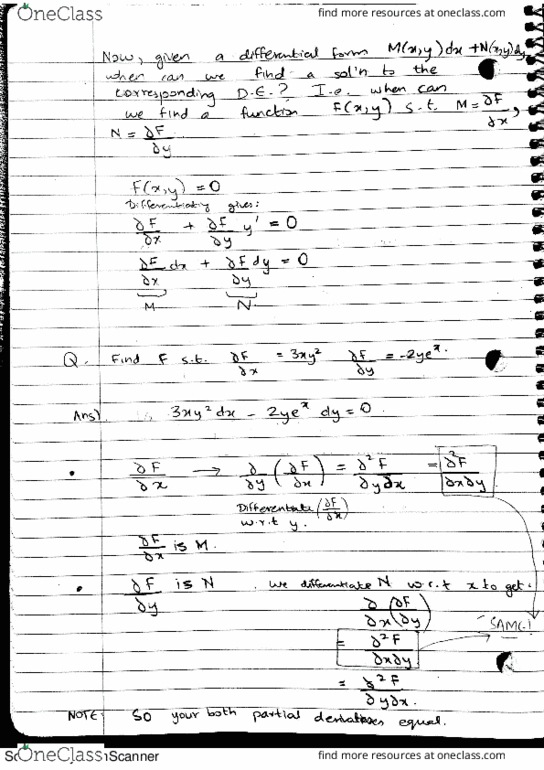 OneClass
find more resources at oneclass.com
Now, given a differential form M(x,y)dx + N(x,y)dy
when can we find a sol'n to the
corresponding D.E.? I.e. when can
we find a function F(x,y) s.t. M = ∂F/∂x,
N = ∂F/∂y
F(x,y) = 0
Differentiating gives:
∂F/∂x + ∂F/∂y y' = 0
∂F/∂x dx + ∂F/∂y dy = 0
M N
Q. Find F s.t. ∂F/∂x = 3xy² ∂F/∂y = -2ye^x.
Ans) 3xy²dx - 2ye^x dy = 0
• ∂F/∂x → ∂/∂y (∂F/∂x) = ∂²F/∂y∂x = ∂²F/∂x∂y
Differentiate (∂F/∂x)
w.r.t y.
∂F/∂x is M.
• ∂F/∂y is N. We differentiate N w.r.t x to get.
∂/∂x (∂F/∂y)
SAME!
= ∂²F/∂x∂y
= ∂²F/∂y∂x.
NOTE: So your both partial derivatives equal.
OneClass
Scanner
find more resources at oneclass.com